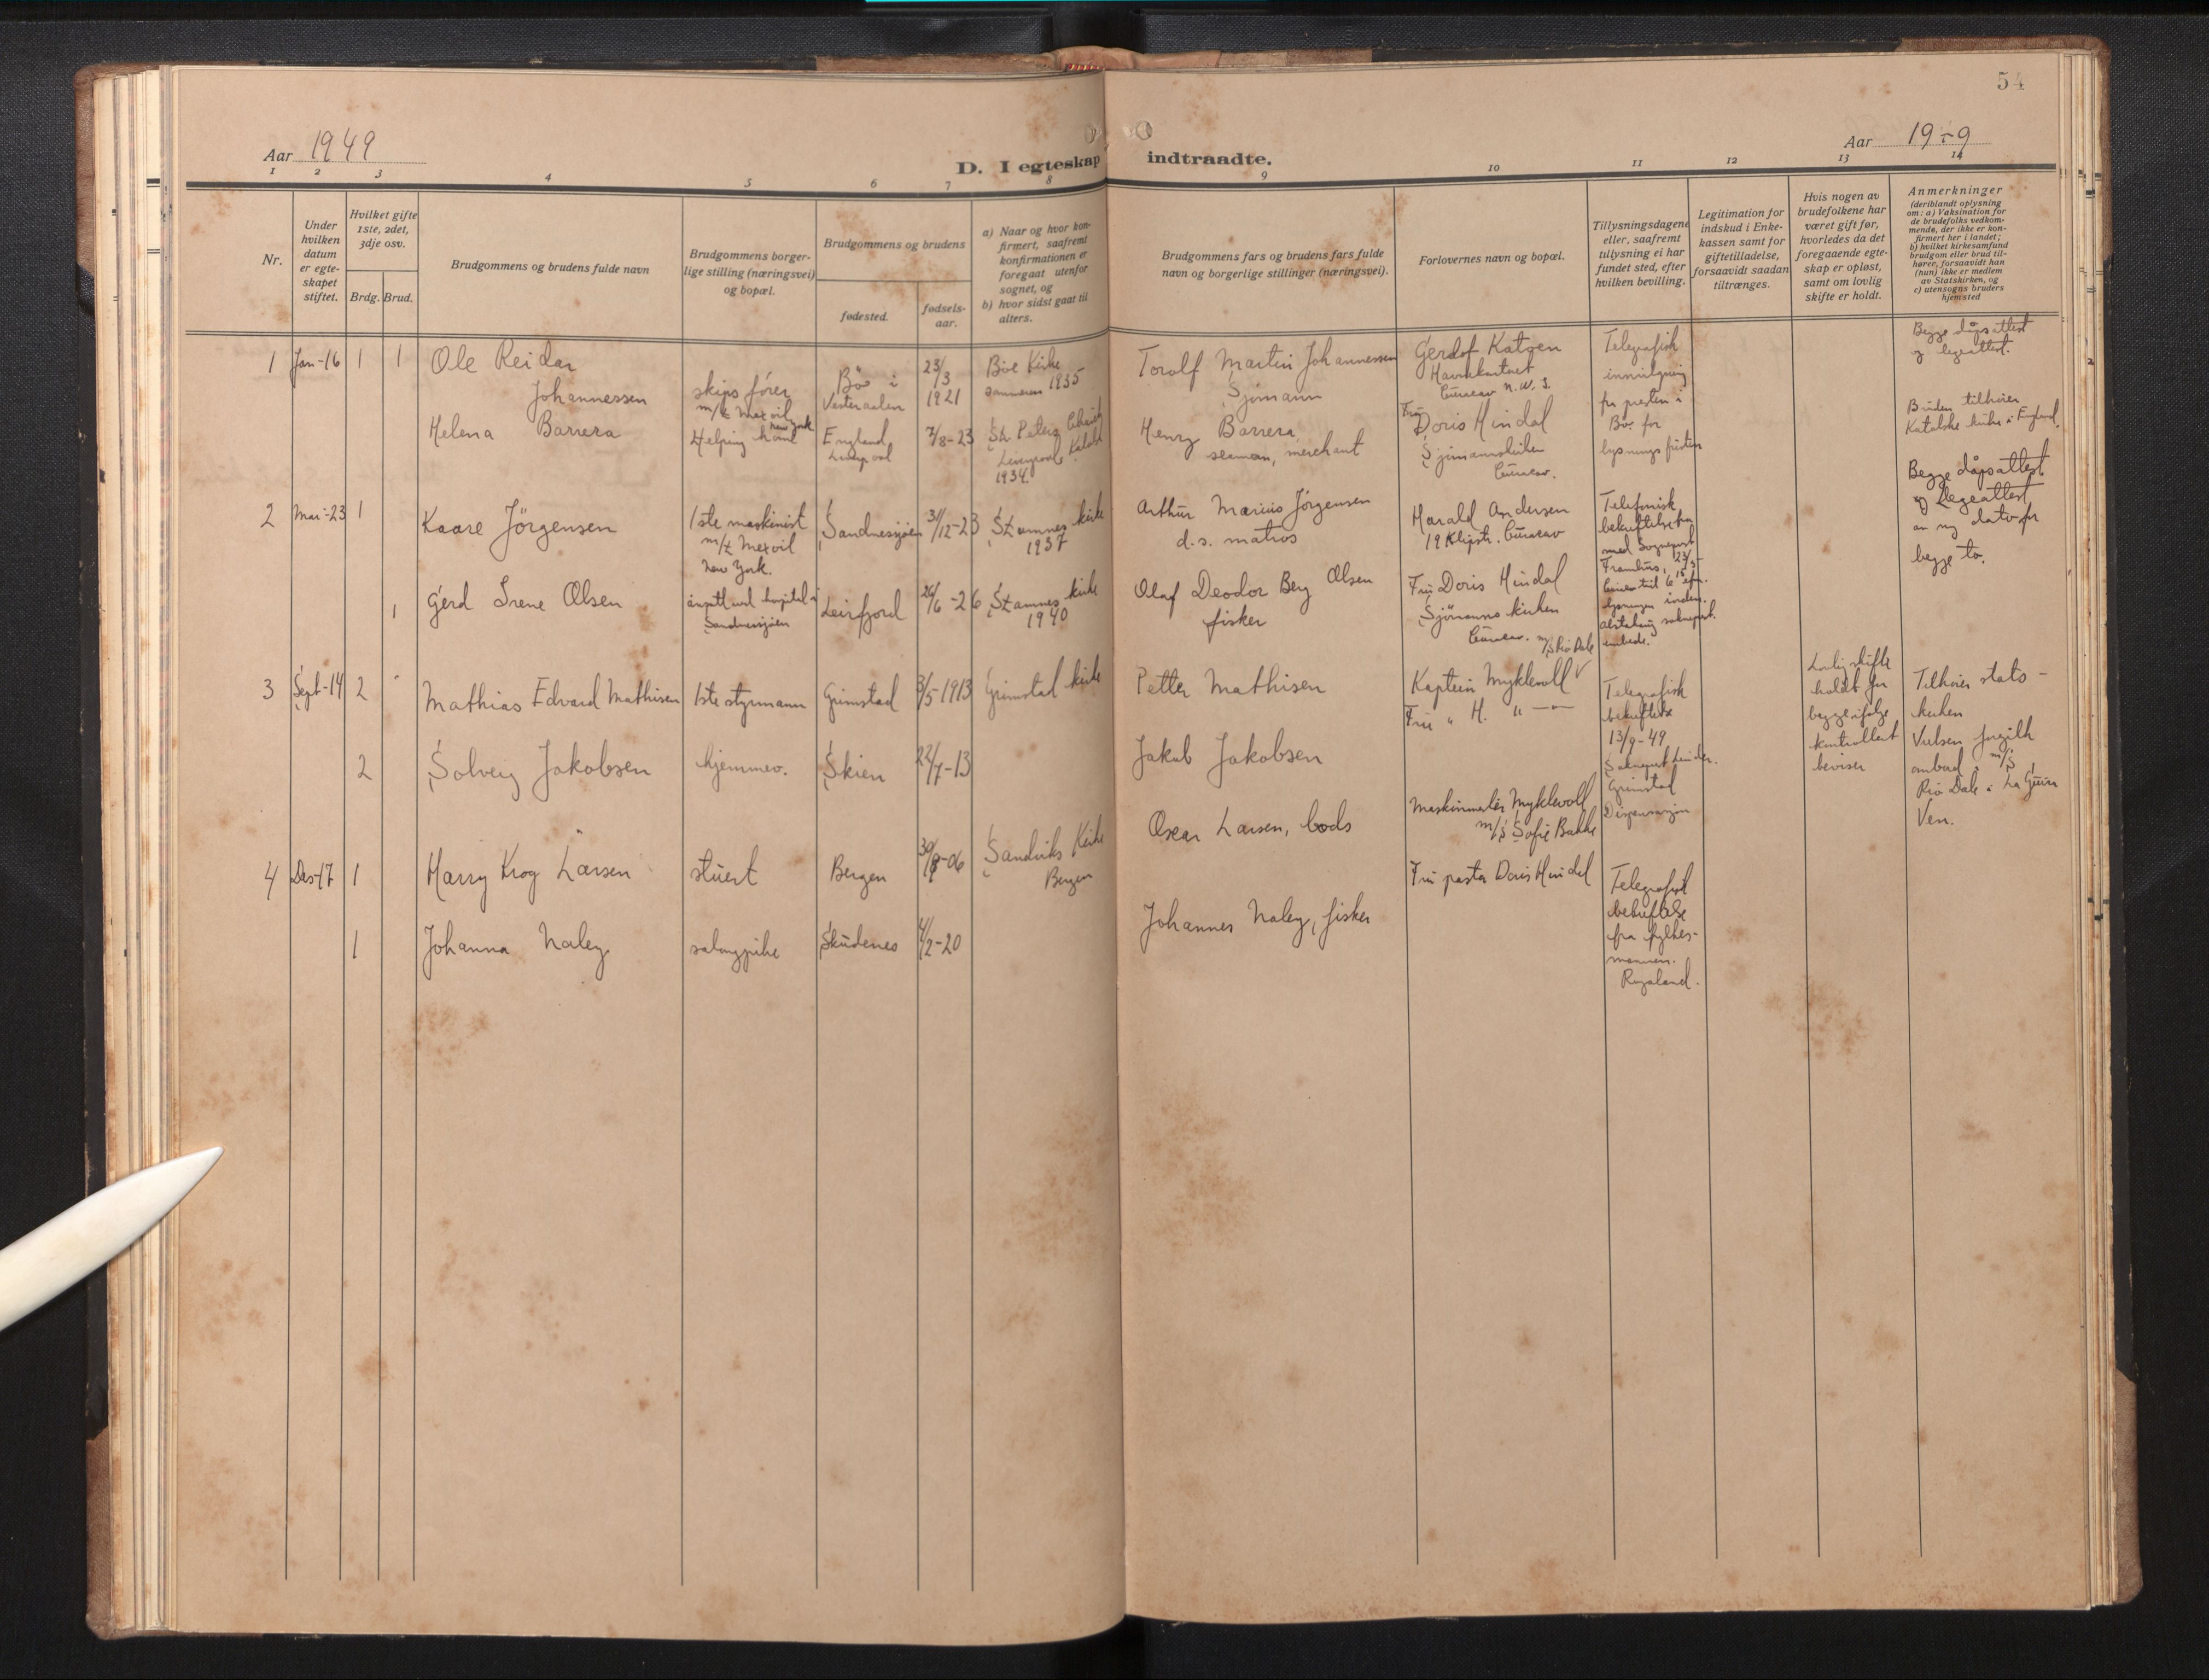 54
Aar 1949
D. I egteskap indtraadte.
Aar 19-9
1 2 3 4 5 6 7 8 9 10 11 12 13 14
Nr.
Under
hvilken
datum
er egte-
skapet
stiftet.
Hvilket gifte
1ste, 2det,
3dje osv.
Brdg. Brud.
Brudgommens og brudens fulde navn
Brudgommens borger-
lige stilling (næringsvei)
og bopæl.
Brudgommens og brudens
fødested.
fødsels-
aar.
a) Naar og hvor kon-
firmert, saafremt
konfirmationen er
foregaat utenfor
sognet, og
b) hvor sidst gaat til
alters.
Brudgommens fars og brudens fars fulde
navn og borgerlige stillinger (næringsvei).
Forlovernes navn og bopæl.
Tillysningsdagene
eller, saafremt
tillysning ei har
fundet sted, efter
hvilken bevilling.
Legitimation for
indskud i Enke-
kassen samt for
giftetilladelse,
forsaavidt saadan
tiltrænges.
Hvis nogen av
brudefolkene har
været gift før,
hvorledes da det
foregaaende egte-
skap er opløst,
samt om lovlig
skifte er holdt.
Anmerkninger
(deriblandt oplysning
om: a) Vaksination for
de brudefolks vedkom-
mende, der ikke er kon-
firmert her i landet;
b) hvilket kirkesamfund
brudgom eller brud til-
hører, forsaavidt han
(hun) ikke er medlem
av Statskirken, og
c) utensogns bruders
hjemsted
1 Jan-16 1 1
Ole Reidar
Johannessen
skips fører
m/t Mexoil
New York
Bö i
Vesteraalen
23/3
1921
Böe Kirke
sommeren 1935
Torolf Martin Johannessen
Sjømann
Gerdof Katzen
Havnekontoret
Curacao N.W.I.
Telegrafisk
fra presten i
Bö for
Begge dåpsattest
og legeattest.
Helena Barrera
Helping home
England
Liverpool
7/8-23
St. Peters Church
Liverpool
1934.
Henry Barrera,
seaman, merchant
Fru
Doris Hindal
Sjømannskirken
Curacao.
Bruden tilhører
Katolske kirke i England.
2 Mai-23 1
Kaare Jörgensen
1ste maskinist
m/t Mexoil
New York.
Sandnessjöen
31/12-23
Stamnes kirke
1937
Arthur Marius Jörgensen
d.s. matros
Harald Andersen
19 Klipstr. Curacao
Telefonisk
bekreftelse
med Sogneprest
Begge dåpsattest
og Legeattest
av ny dato for
begge to.
1
Gerd Irene Olsen
ansatt ved hospital i
Sandnessjöen
Leirfjord
26/6-26
Stamnes kirke
1940
Olaf Deodor Berg Olsen
fisker
Fru Doris Hindal
Sjömanns kirken
Curacao.
embede.
3 Sept-14 2
Mathias Edvard Mathisen
1ste styrmann
Grimstad
3/5-1913
Grimstad kirke
Petter Mathisen
m/s Rio Dale
Kaptein Myklevoll
Fru " H. " —"—
Telegrafisk
bekreftelse
13/9-49
Grimstad
Lovlig skifte
holdt for
begge ifølge
kontrollert
beviser
Tilhører stats-
kirken
Vielsen forgikk
ombord i m/s
Rio Dale i La Guira
Ven.
2
Solveig Jakobsen
hjemmev.
Skien
22/7-13
Jakob Jakobsen
4 Des-17 1
Harry Krog Larsen
stuert
Bergen
30/8-06
Sandviks Kirke
Bergen
Oscar Larsen, bods
Maskinmester Myklevoll
m/s Sofie Bakke
Dispensasjon
1
Johanna Naley
salongpike
Skudenes
4/2-20
Johannes Naley, fisker
Fru pastor Doris Hindal
Telegrafisk
bekreftelse
fra fylkes-
mannen.
Rogaland.